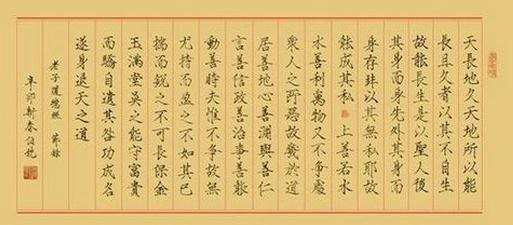 天長地久天地所以能
長且久者以其不自生
故能長生是以聖人後
其身而身先外其身而
身存非以其無私耶故
能成其私 上善若水
水善利萬物又不爭處
衆人之所惡故幾於道
居善地心善淵與善仁
言善信政善治事善能
動善時夫惟不爭故無
尤持而盈之不如其已
揣而銳之不可長保金
玉滿堂莫之能守富貴
而驕自遺其咎功成名
遂身退天之道
老子道德經 節錄
辛卯新春